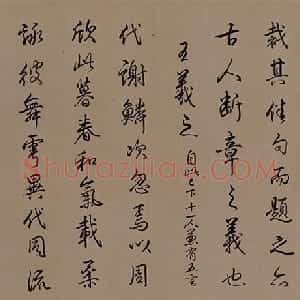 裁其佳句而題之亦
古人断章之義也
王羲之 自此已下十一人兼有五言
代謝鱗次忽焉以周
欣此暮春和氣載柔
詠彼舞雩異代同流